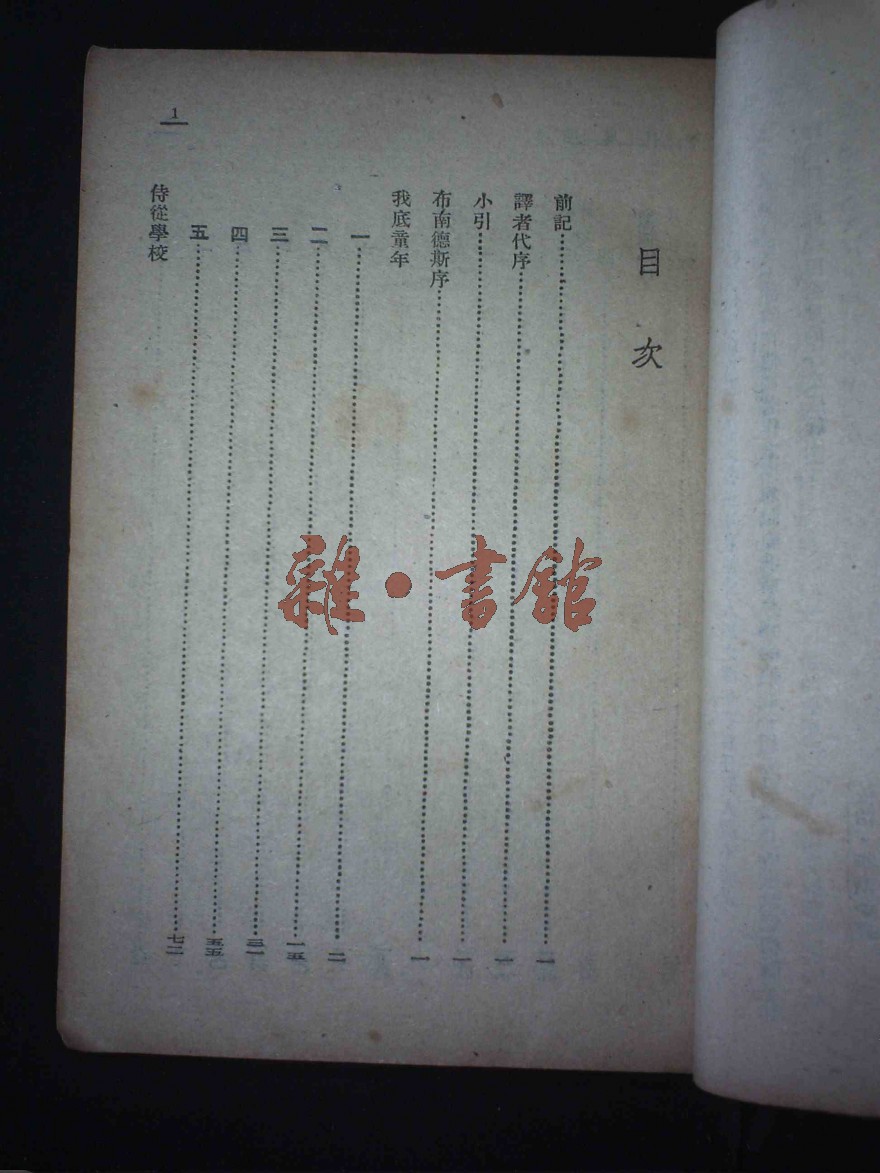 目次
前記……一
譯者代序……一
小引……一
布南德斯序……一
我底童年
一……二
二……一五
三……三一
四……五五
五……七二
侍從學校
1
雜·書館